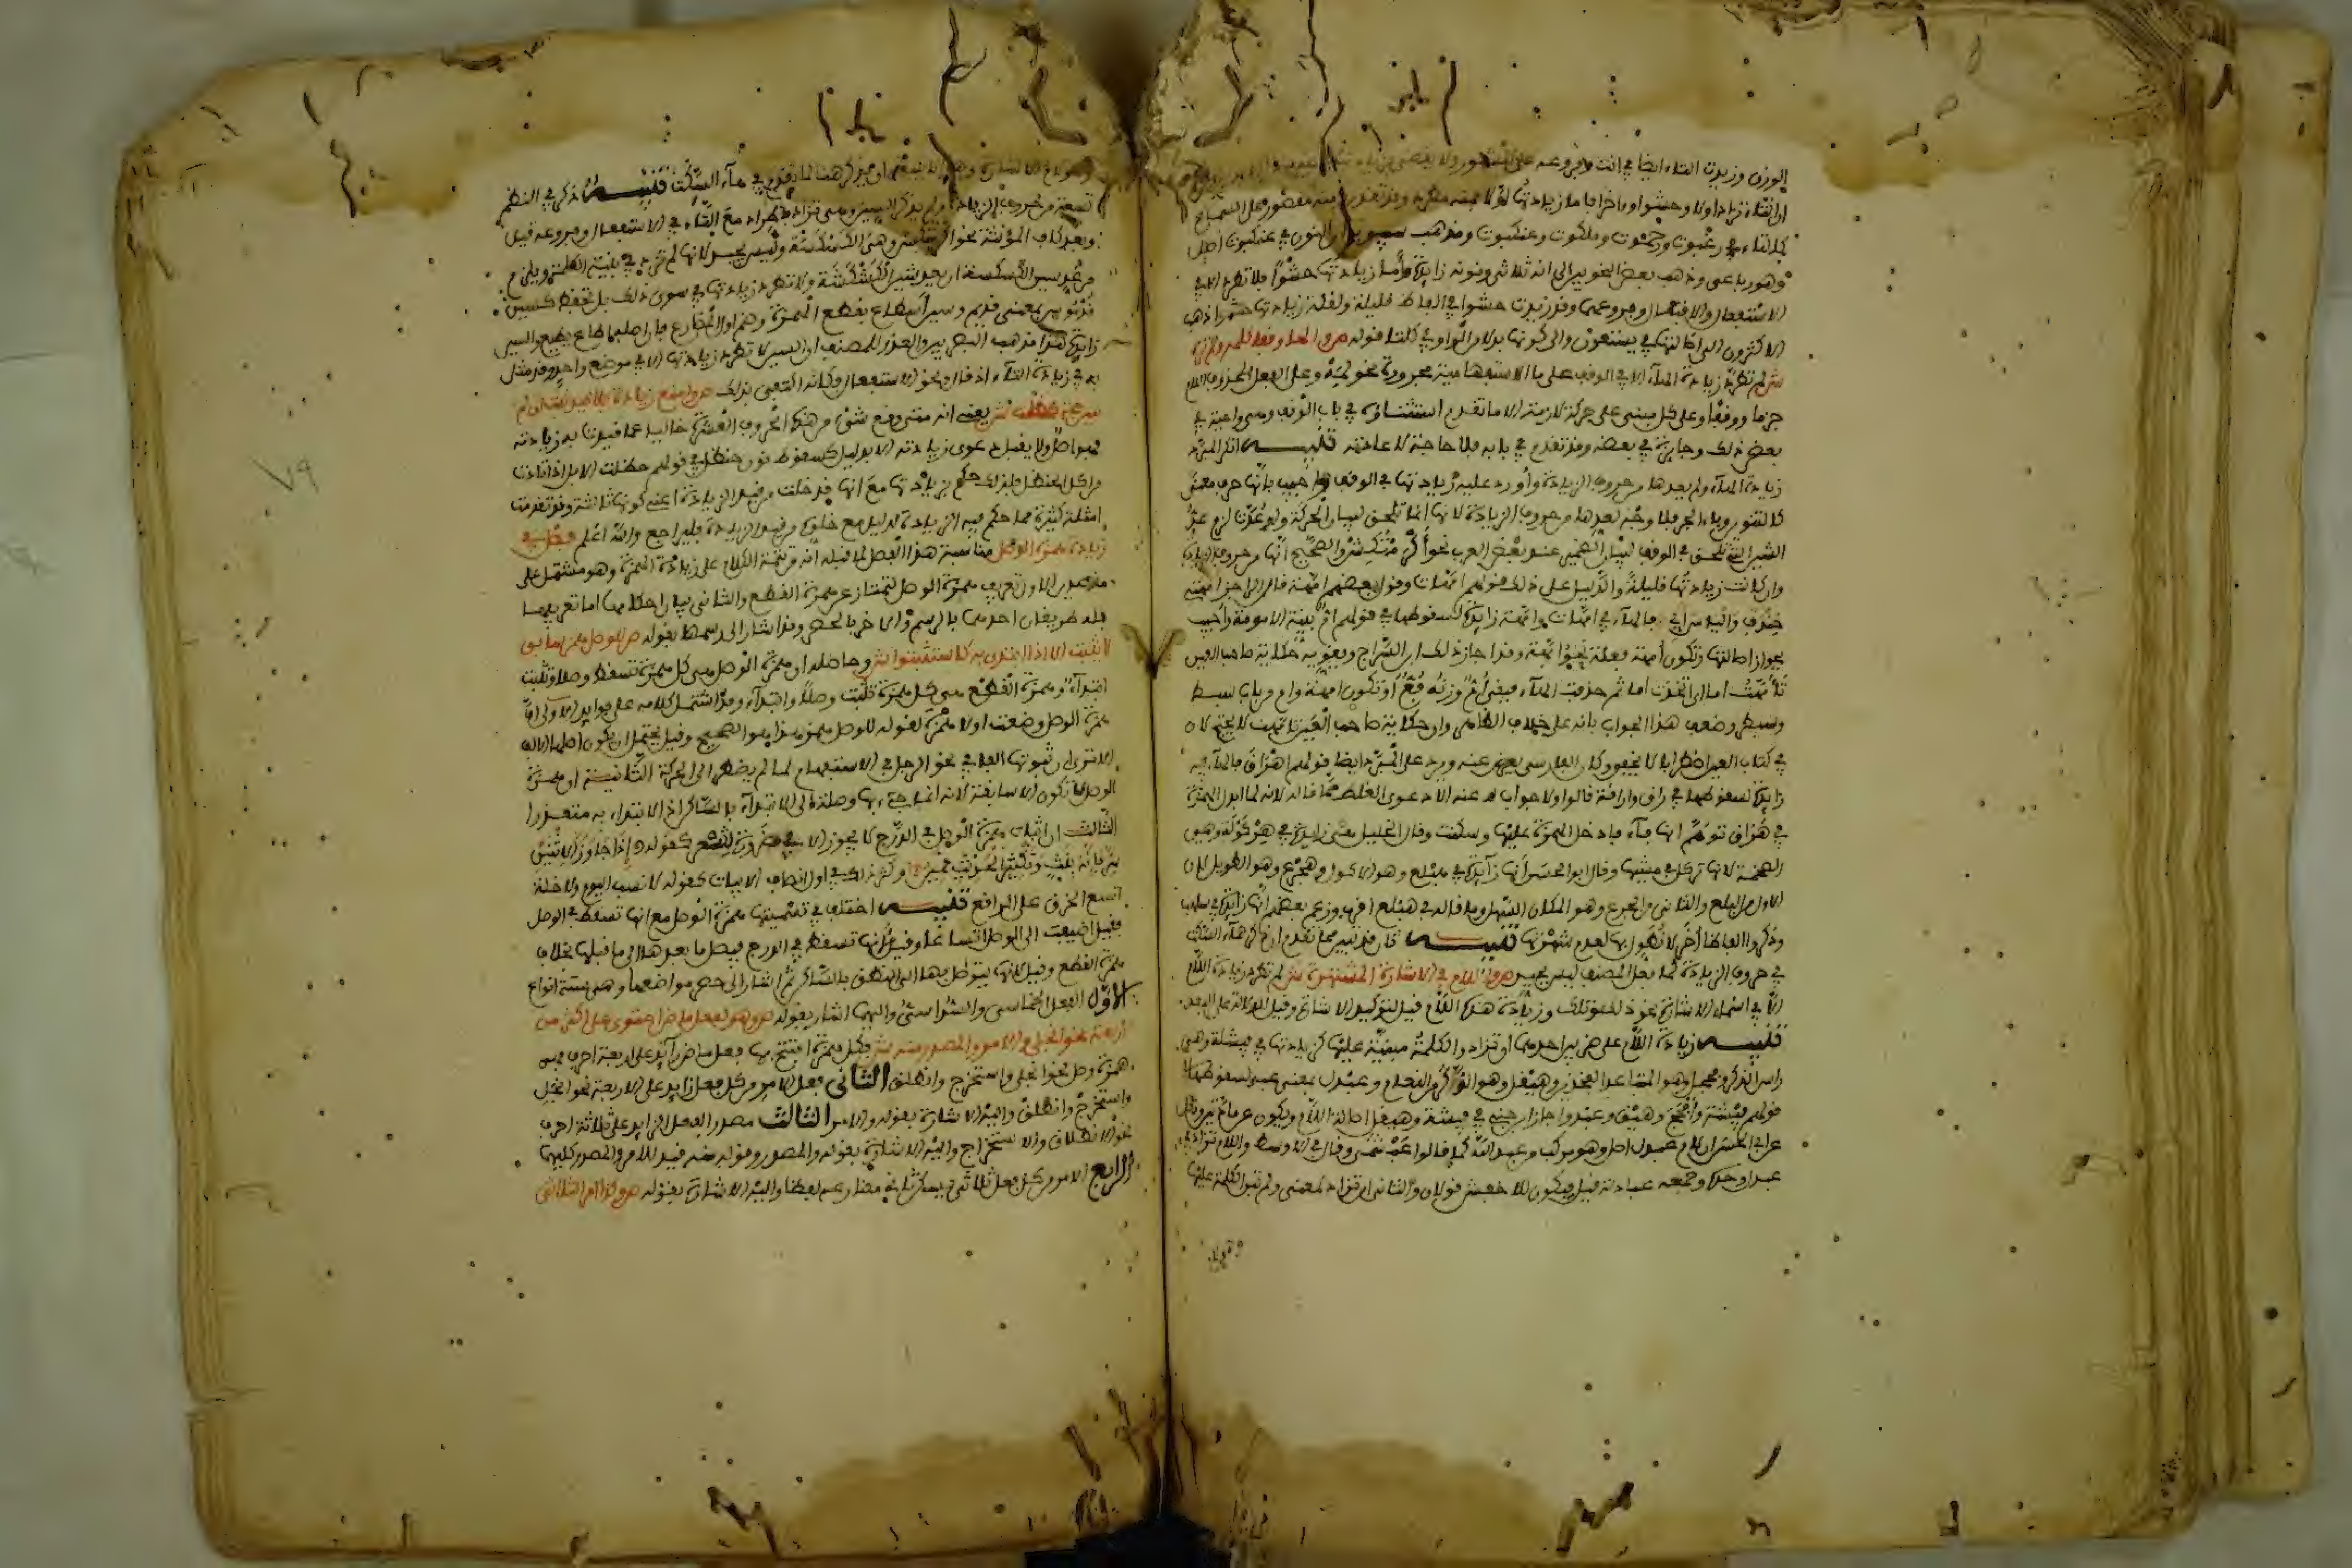 الوزن وزيدت التاء ايضا في انت وفروعه على المشهور ولا يقضى بزيادة
ان التاء تزاد اولا وحشوا واخرا فاما زيادتها اولا فمنه مطرد وقد تقدم ومنه مقصور على السماع
كالتاء في رغبوت ورحموت وملكوت وعنكبوت ومذهب سيبويه ان النون في عنكبوت اصل
وهو رباعي وذهب بعض النحويين الى انه ثلاثي ونونه زايدة واما زيادتها حشوا فلا تطرد الا في
الاستفعال والافتعال وفروعهما وقد زيدت حشوا في الفاظ قليلة ولقلة زيادتها حشوا ذهب
الاكثرون الى اصالتها في يستعور والى كونها بدلا من الواو في كلتا قوله ص والهاء وقفا كلمه ولم تره
ش لم تطرد زيادة الهاء الا في الوقف على ما الاستفهامية مجرورة نحو لمه وعلى الفعل المحذوف اللام
جزما ووقفا وعلى كل مبني على حركة لازمة الا ما تقدم استثناؤه في باب الوقف وهي واجبة في
بعض ذلك وجايزة في بعضه وقد تقدم في بابه فلا حاجة لاعادته تنبيه انكر المبرد
زيادة الهاء ولم يعدها من حروف الزيادة واورد عليه زيادتها في الوقف واجيب بانها حرف معنى
كالتنوين وباء الجر فلا وجه لعدها من حروف الزيادة لانها انما تلحق لبيان الحركة ولو عدت لزم عد
الشين التي تلحق في الوقف لبيان الضمير عند بعض العرب نحو اكرمتكش والصحيح انها من حروف الزيادة
وان كانت زيادتها قليلة والدليل على ذلك قولهم امهات وقول بعضهم امهة قال الراجز امهتي
خندف والياس ابي فالهاء في امهات وامهة زايدة لسقوطها في قولهم ام بينة الامومة واجيب
بجواز اصالتها وتكون امهة فعلة نحو ابهة وقد اجاز ذلك ابن السراج ويقويه حكاية صاحب العين
تامهت اما اي اتخذت اما ثم حذفت الهاء فبقي ام وزنه فع او تكون امهة وام من باب سبط
وسبطر وضعف هذا الجواب بانه على خلاف الظاهر وان حكاية صاحب العين تامهت لا يحتج لان
في كتاب العين اضطرابا لا يخفى وكان الفارسي يعرض عنه ويرد على المبرد ايضا قولهم اهراق فالهاء فيه
زايدة لسقوطها في اراق واراقة قالوا ولا جواب له عنه الا دعوى الغلط ممن قاله لانه لما ابدل الهمزة
في هراق توهم انها فاء فادخل الهمزة عليها وسكنت وقال الخليل هي زايدة في هركولة وهي
الضخمة لانها تركل في مشيها وقال ابو الحسن انها زايدة في هبلع وهو الاكول وهجرع وهو الطويل لان
الاول من البلع والثاني من الجرع وهو المكان السهل
وذكروا الفاظا اخر لا نطول بها لعدم شهرتها تنبيه قد تبين مما تقدم ان ذكر هاء السكت
في حروف الزيادة كما فعل المصنف ليس بجيد ص واللام في الاشارة المشتهره ش لم تطرد زيادة اللام
الا في اسماء الاشارة نحو ذلك وتلك وزيادة هذه اللام قيل لتوكيد الاشارة وقيل للدلالة على البعد
تنبيه زيادة اللام على ضربين احدهما ان تزاد والكلمة مبنية عليها كزيادتها في فيشلة وهي
راس الذكر وفحجل وهو المتباعد الفخذين وهيقل وهو الذكر من النعام وعبدل بمعنى عبد لسقوطها في
قولهم فيشة وافحج وهيق وعبد واجاز ابن جني في فيشة وهيقل اصالة اللام ويكون من مادتين ونقل
عن ابي الحسن ان لام عبدل اصل وهو مركب من عبد الله كما قالوا عبشمي وقال في الاوسط واللام تزاد في
عبدل وحده وجمعه عبادلة قيل فيكون للاخفش قولان والثاني ان تزاد لمعنى ولم تبن الكلمة عليها
وهي لام
تسعة من حروف الزيادة ولم يذكر السين وهي تزاد باطراد مع التاء في الاستفعال وفروعه قيل
وبعد كاف المؤنثة نحو اكرمتكس وهي الكسكسة وليس بجيد لانها لم تزد في بنية الكلمة ويلزم
من عد سين الكسكسة ان يعد شين الكشكشة ولا تطرد زيادتها في سوى ذلك بل تحفظ كسين
قدموس بمعنى قديم وسين اسطاع بقطع الهمزة وضم اول المضارع فان اصله اطاع يطيع والسين
زايدة هذا مذهب البصريين والعذر للمصنف ان السين لا تطرد زيادتها الا في موضع واحد وقد مثل
به في زيادة التاء اذ قال ونحو الاستفعال وكانه اكتفى بذلك ص وامنع زيادة بلا قيد ثبت ان لم
تبين حجة كحظلت ش يعني انه متى وقع شيء من هذه الحروف العشرة خاليا عما قيدت به زيادته
فهو اصل ولا يقبل دعوى زيادته الا بدليل كسقوط نون حنظل في قولهم حظلت الابل اذا تاذت
من اكل الحنظل فلذلك حكم بزيادتها مع انها قد خلت من قيد الزيادة اعني كونها ثالثة وقد تقدمت
امثلة كثيرة مما حكم فيه بالزيادة لدليل مع خلوه من قيد الزيادة فليراجع والله اعلم فصل في
زيادة همزة الوصل مناسبة هذا الفصل لما قبله انه من تتمة الكلام على زيادة الهمزة وهو مشتمل على
مقصدين الاول تعريف همزة الوصل لتمتاز عن همزة القطع والثاني بيان احكامها اما تعريفها
فله طريقان احدهما بالرسم والاخر بالحصر وقد اشار الى رسمها بقوله ص للوصل همز سابق
لا يثبت الا اذا ابتدي به كاستثبتوا ش وحاصله ان همزة الوصل هي كل همزة تسقط وصلا وتثبت
ابتداء وهمزة القطع هي كل همزة تثبت وصلا وابتداء وقد اشتمل كلامه على فوايد الاولى ان
همزة الوصل وضعت اولا همزة لقوله للوصل همز هذا هو الصحيح وقيل يحتمل ان يكون اصلها الالف
الا ترى ان ثبوتها الفا في نحو الرجل في الاستفهام لما لم يضطر الى الحركة الثانية ان همزة
الوصل لا تكون الا سابقة لانه انما جيء بها وصلة الى الابتداء بالساكن اذ الابتداء به متعذر
الثالث ان اثبات همزة الوصل في الدرج لا يجوز الا في ضرورة الشعر كقوله اذا جاوز الاثنين
سر فانه بنث وتكثير الحديث قمين وكثر ذلك في اول انصاف الابيات كقوله لا نسب اليوم ولا خلة
اتسع الخرق على الراقع تنبيه اختلف في تسميتها همزة الوصل مع انها تسقط في الوصل
فقيل اضيفت الى الوصل اتساعا وقيل لانها تسقط في الدرج فيصل ما بعدها الى ما قبلها بخلاف
همزة القطع وقيل لانها يتوصل بها الى النطق بالساكن ثم اشار الى حصر مواضعها وهي ستة انواع
الاول الفعل الخماسي والسداسي واليهما اشار بقوله ص وهو لفعل ماض احتوى على اكثر من
اربعة نحو انجلى والامر والمصدر منه ش فكل همزة افتتح بها فعل ماض زايد على اربعة احرف فهي
همزة وصل نحو انجلى واستخرج وانطلق الثاني فعل الامر من كل فعل زايد على الاربعة نحو انجل
واستخرج وانطلق واليه الاشارة بقوله والامر الثالث مصدر الفعل الزايد على ثلاثة احرف
نحو الانطلاق والاستخراج واليه الاشارة بقوله والمصدر وقوله منه قيد للامر والمصدر كليهما
الرابع الامر من كل فعل ثلاثي يسكن ثاني مضارعه لفظا واليه الاشارة بقوله ص وكذا امر الثلاثي